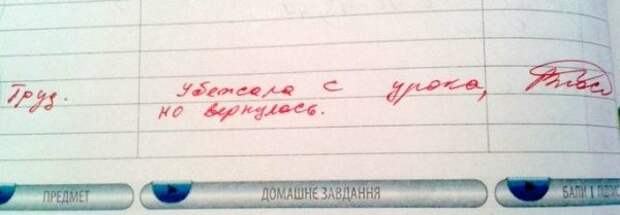 Труд. Убежала с урока,
но вернулась.
ПРЕДМЕТ ДОМАШНЄ ЗАВДАННЯ БАЛИ І